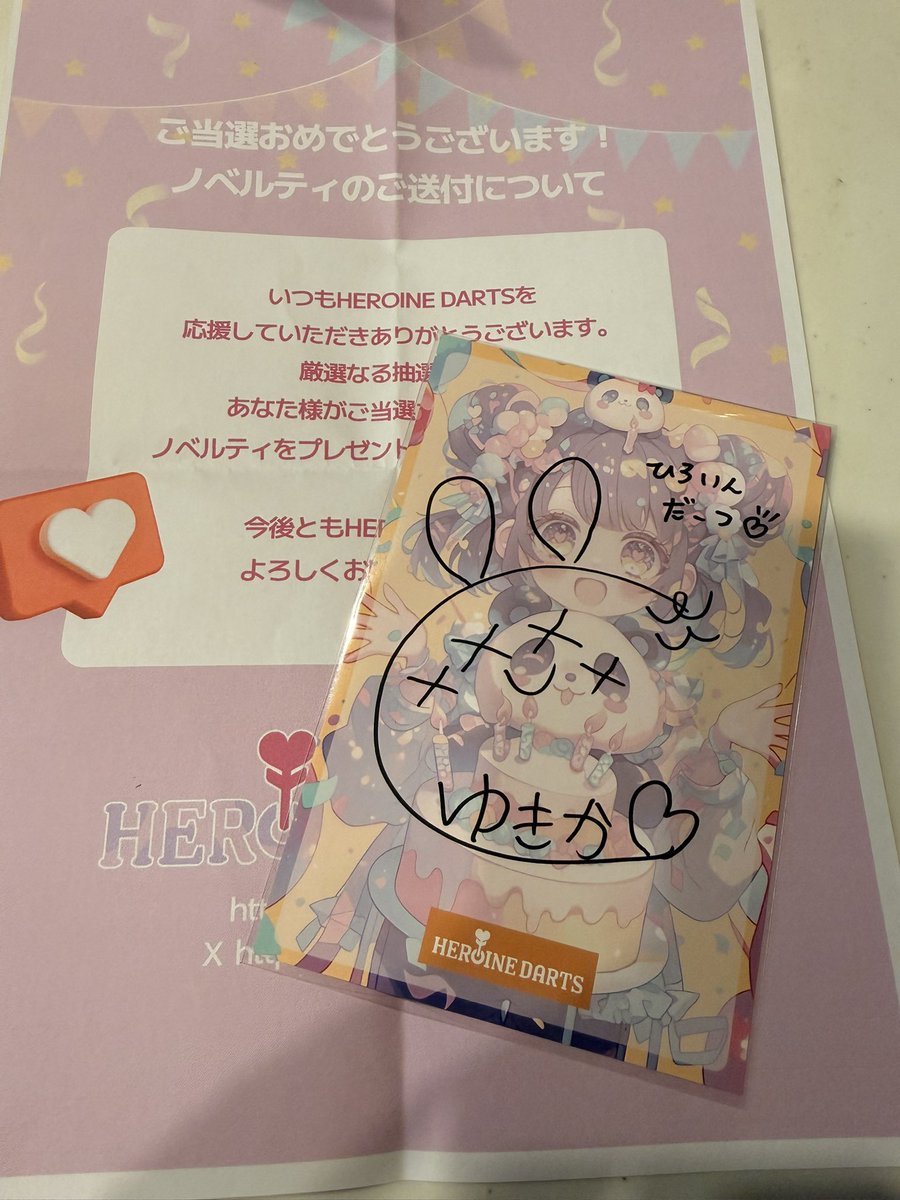 ご当選おめでとうございます！
ノベルティのご送付について
いつもHEROINE DARTSを
応援していただきありがとうございます。
厳選なる抽選
あなた様がご当選
ノベルティをプレゼント
今後ともHER
よろしくお
HERO
htt
X htt
ひろいん
だーつ
ゆきか
HEROINE DARTS